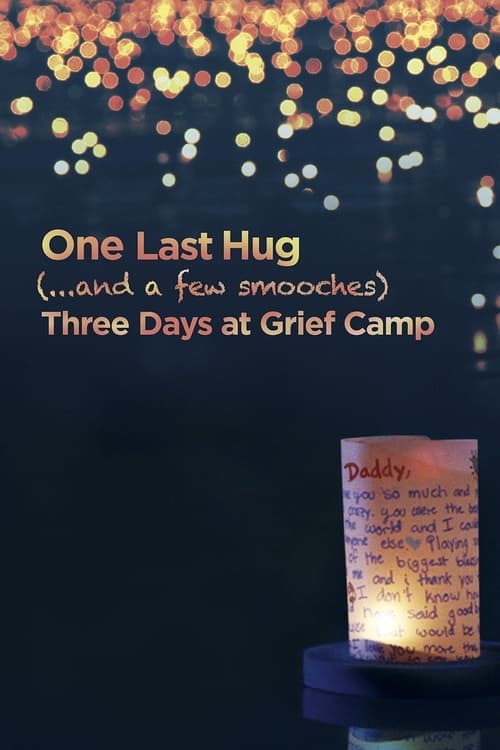 One Last Hug
(...and a few smooches)
Three Days at Grief Camp
Daddy,
you so much and
crazy. you were the
the world and I
else Playing
of the biggest
me and i thank you
I don't know
have said
would be
I love you more